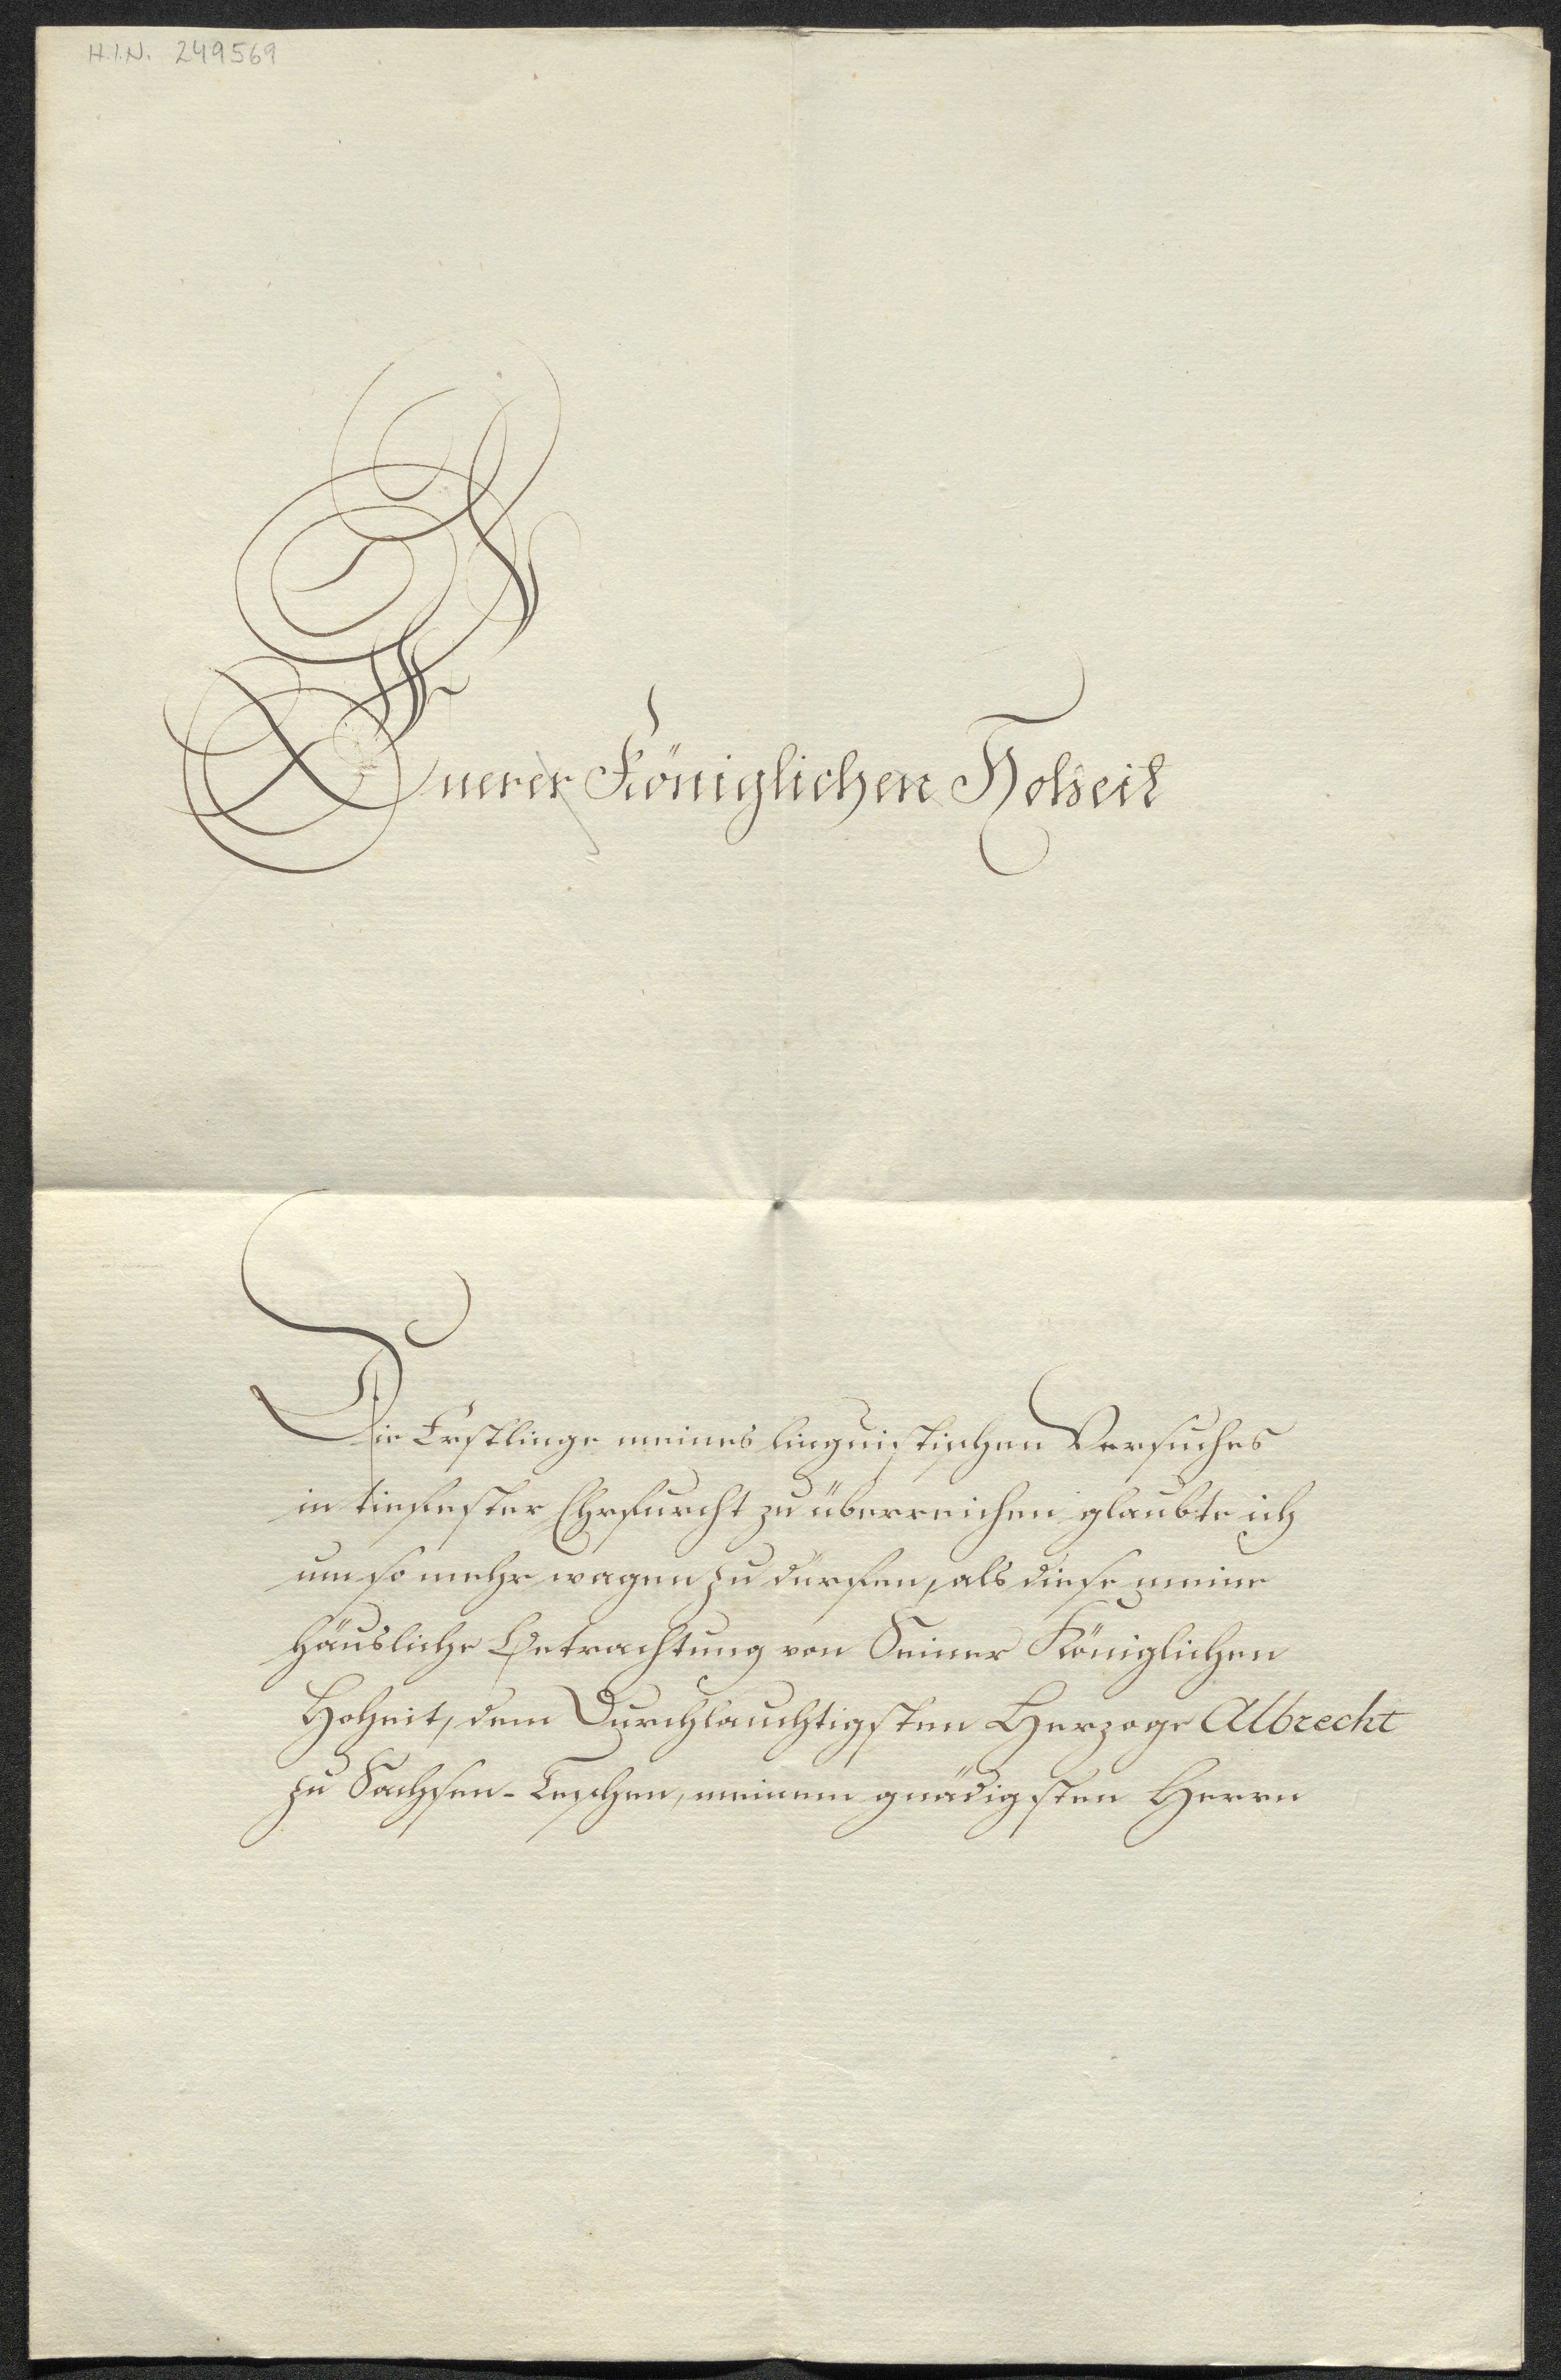 H.I.N. 249569
Euerer Königlichen Hoheit
Die Erstlinge meines linguistischen Versuches
in tiefester Ehrfurcht zu überreichen glaubte ich
um so mehr wagen zu dürfen, als diese meine
häusliche Betrachtung von Seiner Königlichen
Hoheit, dem Durchlauchtigsten Herzoge Albrecht
zu Sachsen-Teschen, meinem gnädigsten Herrn